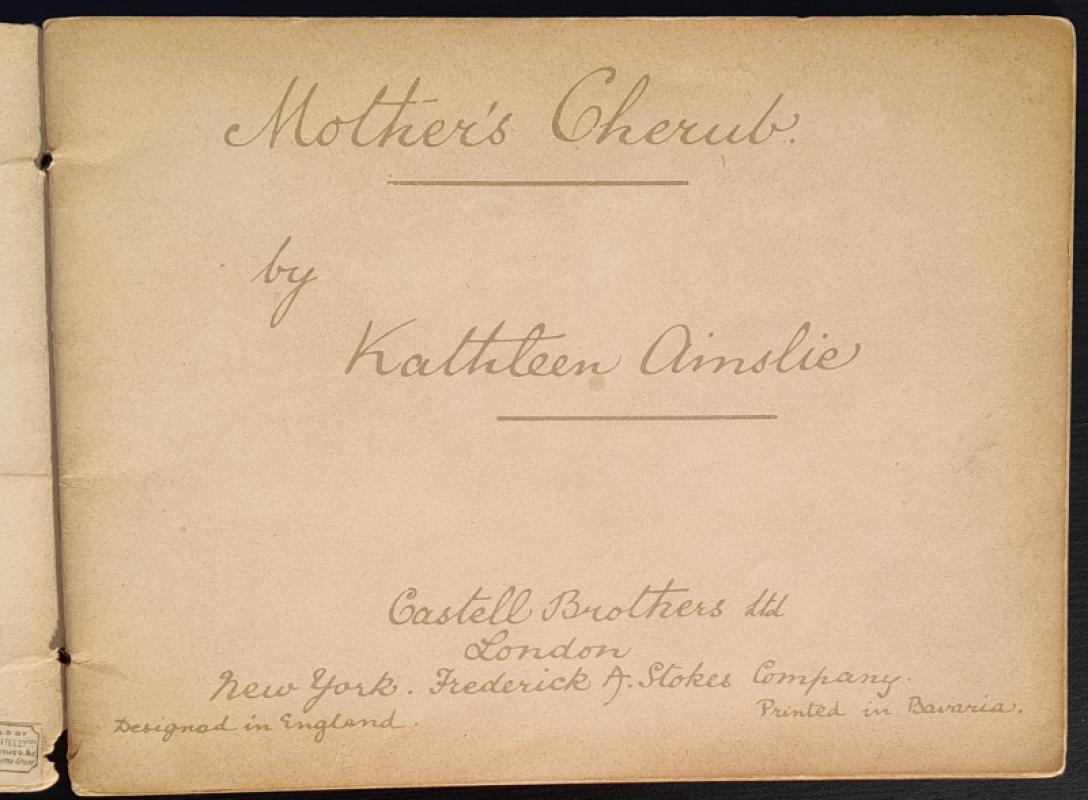 Mother's Cherub.
by
Kathleen Ainslie
Castell Brothers Ltd
London
New York. Frederick A. Stokes Company.
Designed in England.
Printed in Bavaria.